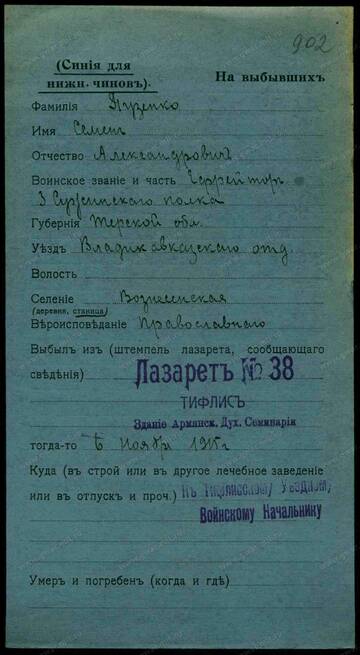 902
(Синія для
нижн. чиновъ).
На выбывшихъ
Фамилія Пузенко
Имя Семенъ
Отчество Александровичъ
Воинское званіе и часть Ефрейторъ
3 полка
Губернія Терской обл.
Уѣздъ Владикавказскаго отд.
Волость
Селеніе Вознесенская
(деревня, станица)
Вѣроисповѣданіе Православнаго
Выбылъ изъ (штемпель лазарета, сообщающаго
свѣдѣнія)
Лазаретъ № 38
ТИФЛИСЪ
Зданіе Армянск. Дух. Семинаріи
тогда-то 6 Ноября 1915 г
Куда (въ строй или въ другое лечебное заведеніе
или въ отпускъ и проч.) Къ Тифлисскому Уѣздному
Воинскому Начальнику
Умеръ и погребенъ (когда и гдѣ)